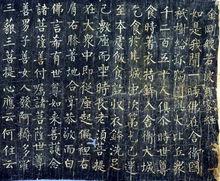 金剛般若波羅蜜經
如是我聞一時佛在舍衛國
祇樹給孤獨園與大比丘眾
千二百五十人俱爾時世尊
食時著衣持鉢入舍衛大城
乞食於其城中次第乞已還
至本處飯食訖收衣鉢洗足
已敷座而坐時長老須菩提
在大眾中即從座起偏袒右
肩右膝著地合掌恭敬而白
佛言希有世尊如來善護念
諸菩薩善付囑諸菩薩世尊
善男子善女人發阿耨多羅
三藐三菩提心應云何住云